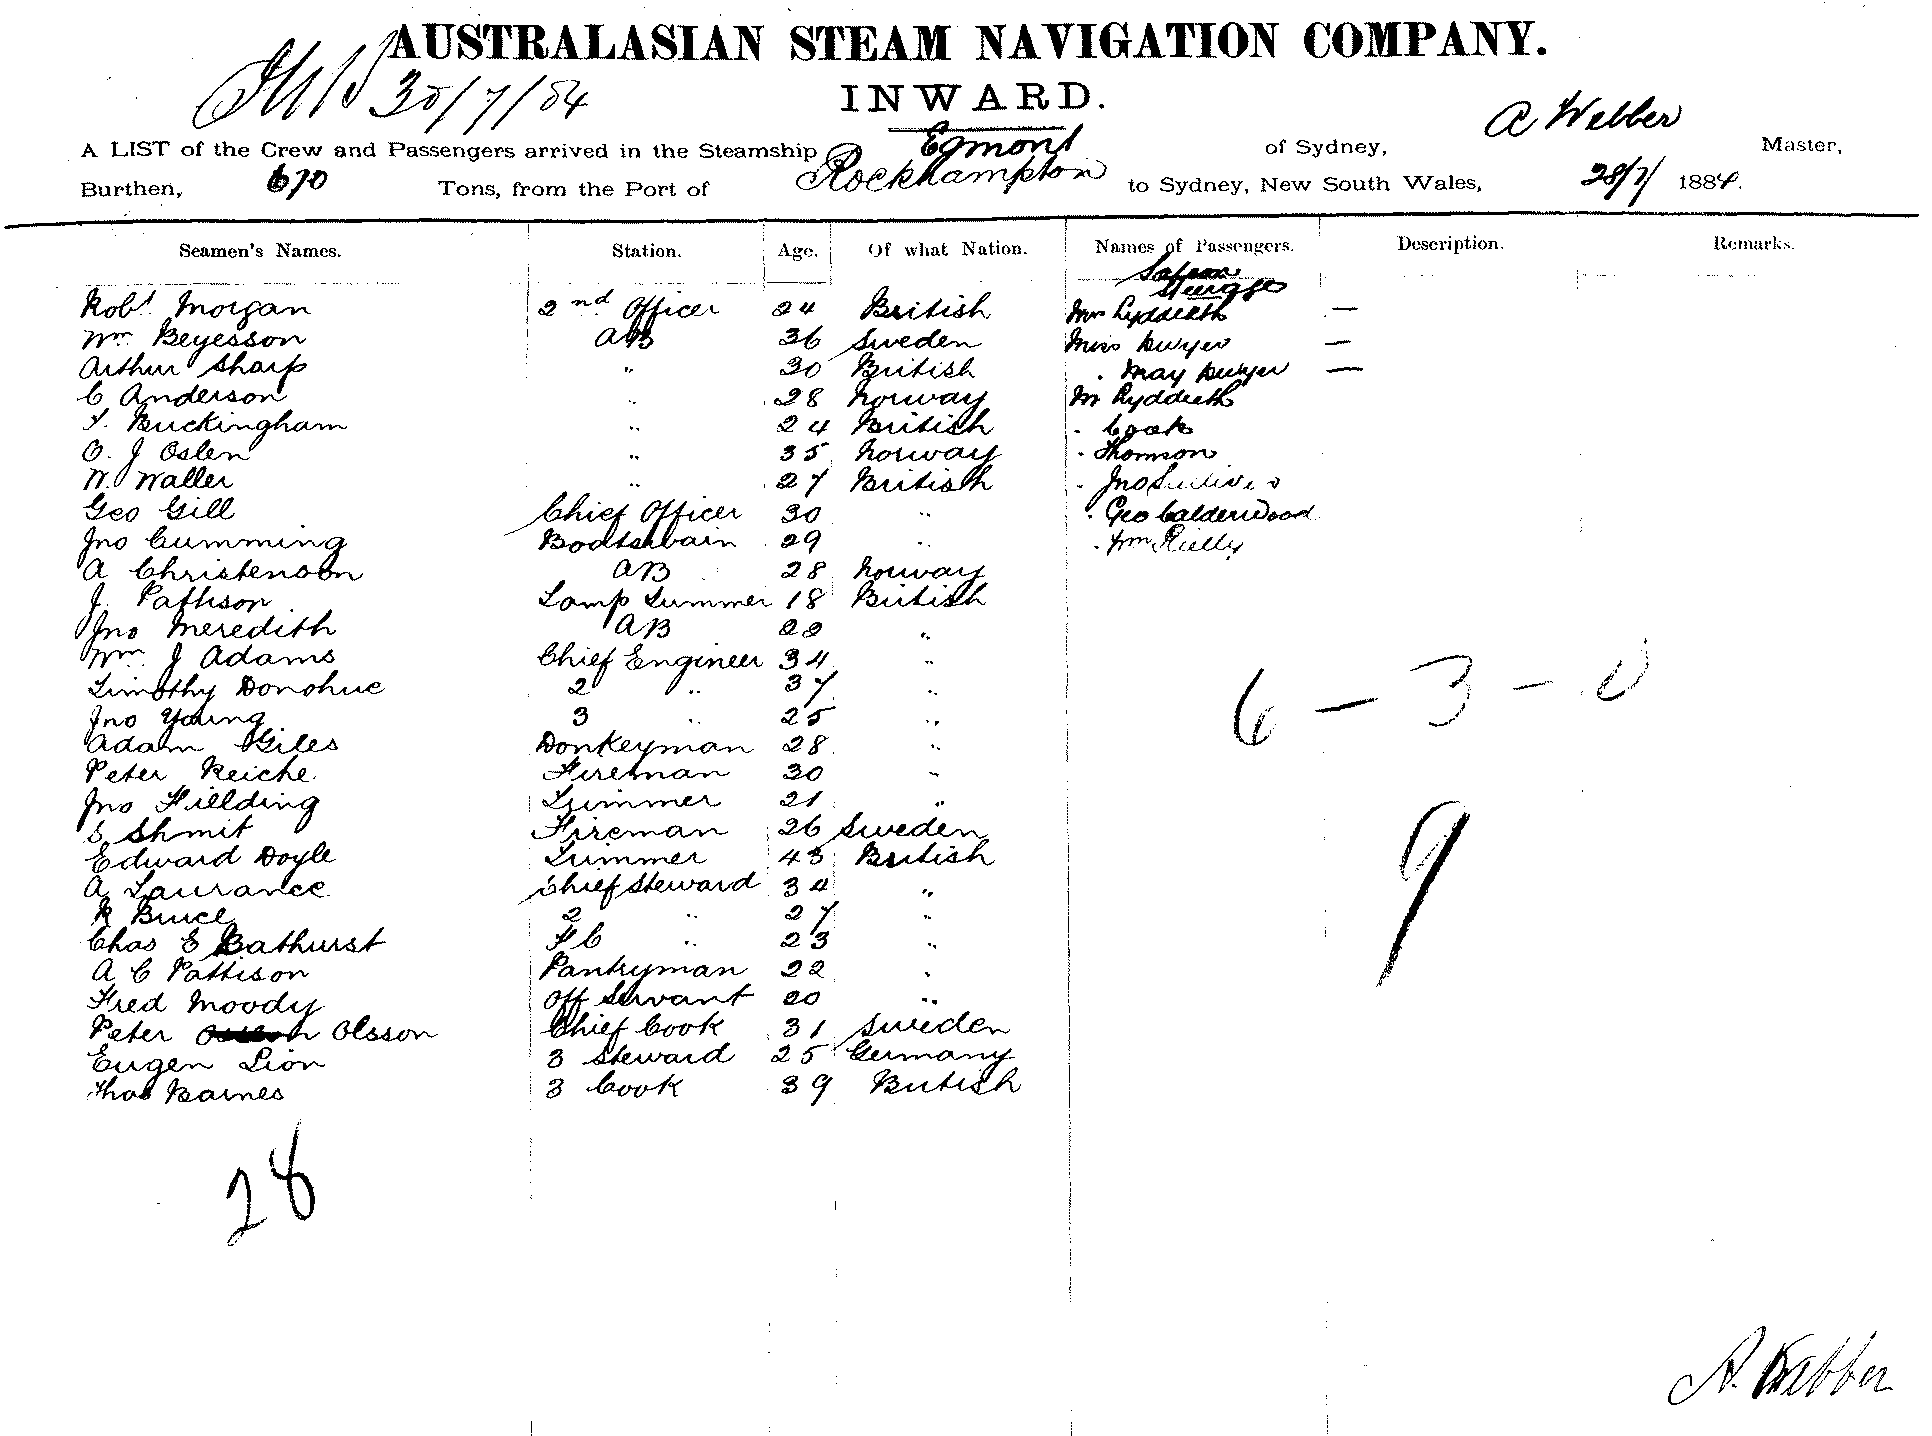 AUSTRALASIAN STEAM NAVIGATION COMPANY.
30/7/84
INWARD.
A LIST of the Crew and Passengers arrived in the Steamship Egmont of Sydney, A Webber Master,
Burthen, 670 Tons, from the Port of Rockhampton to Sydney, New South Wales, 28/7/ 1884.
Seamen's Names. Station. Age. Of what Nation. Names of Passengers. Description. Remarks.
Saloon
Robt Morgan 2nd Officer 24 British Mrs —
Wm Beyesson AB 36 Sweden Miss Dwyer —
Arthur Sharp " 30 British " May Dwyer —
C Anderson " 28 Norway Mr
F. Buckingham " 24 British " Cook
O. J Oslen " 35 Norway " Thomson
W. Waller " 27 British " Jno
Geo Gill Chief Officer 30 " " Geo Calderwood
Jno Cumming Boatswain 29 " " Wm Rielly
A Christenson AB 28 Norway
J. Pattison Lamp Trimmer 18 British
Jno Meredith AB 22 "
Wm J Adams Chief Engineer 34 "
Timothy Donohue 2 " 37 "
Jno Young 3 " 25 "
Adam Giles Donkeyman 28 "
Peter Reiche Fireman 30 "
Jno Fielding Trimmer 21 "
S Shmit Fireman 26 Sweden
Edward Doyle Trimmer 43 British
A Laurance Chief Steward 34 "
R Bruce 2 " 27 "
Chas E Bathurst FC " 23 "
A C Pattison Pantryman 22 "
Fred Moody Off Servant 20 "
Peter Olsson Chief Cook 31 Sweden
Eugen Lion 3 Steward 25 Germany
Thos Barnes 3 Cook 39 British
6 — 3 — 0
9
28
A. Webber